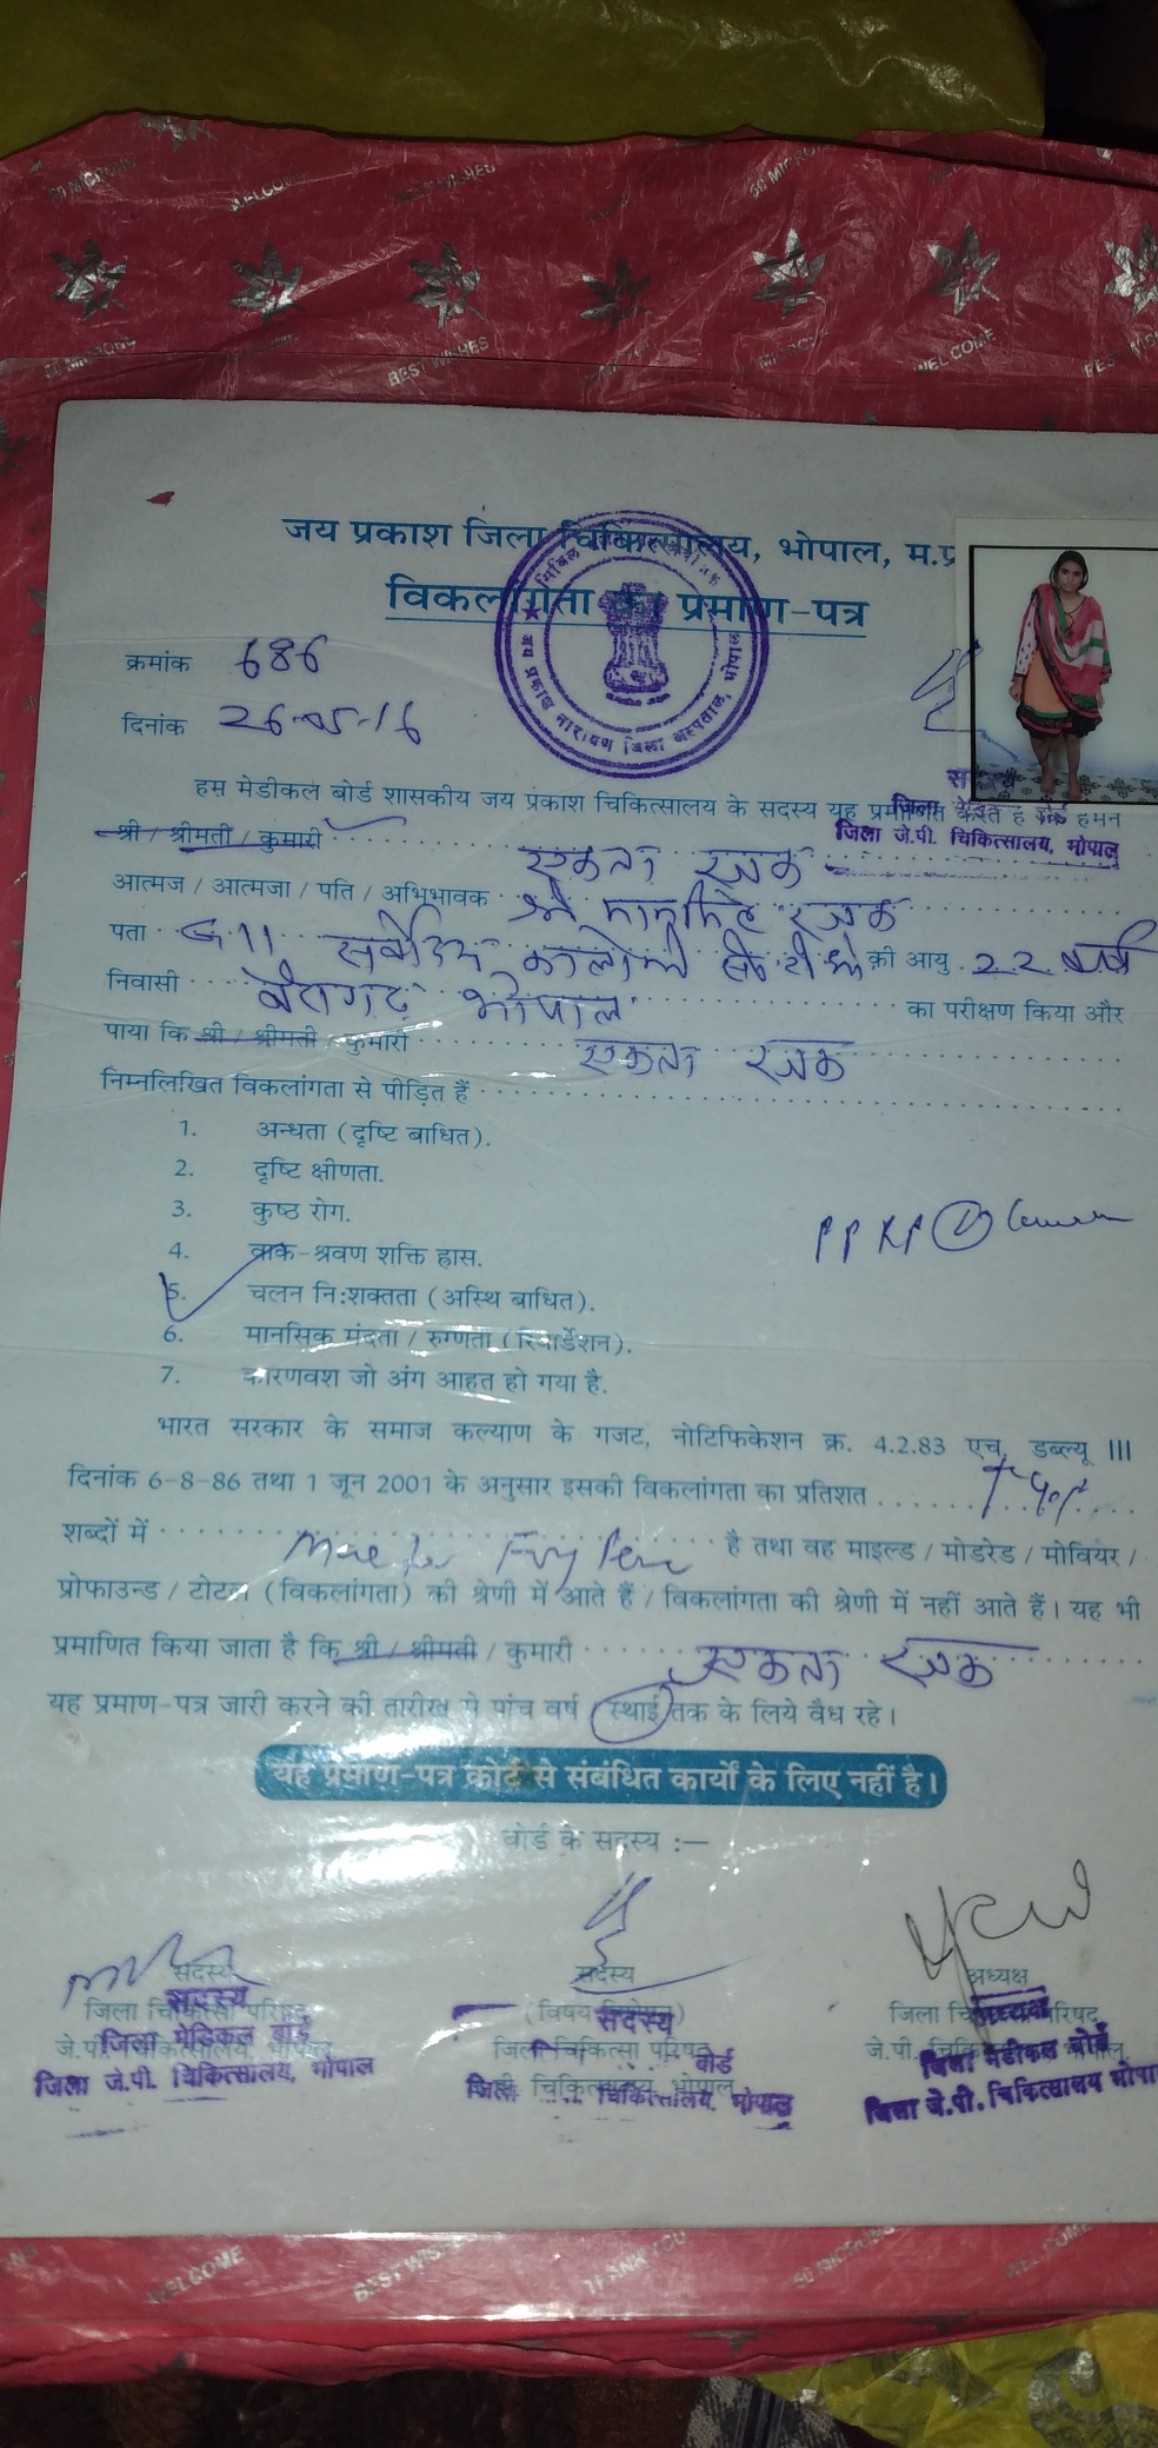 WELCOME BEST WISHES 50 MICRONS
50 MICRONS BEST WISHES WELCOME
जय प्रकाश जिला चिकित्सालय, भोपाल, म.प्र
विकलांगता का प्रमाण-पत्र
जय प्रकाश नारायण जिला अस्पताल, भोपाल
क्रमांक 686
दिनांक 26-05-16
हम मेडीकल बोर्ड शासकीय जय प्रकाश चिकित्सालय के सदस्य यह प्रमाणित करते है कि हमने
जिला जे.पी. चिकित्सालय, भोपाल
श्री / श्रीमती / कुमारी एकता रजक
आत्मज / आत्मजा / पति / अभिभावक श्री रजक
पता G 11 सर्वोदय कालोनी सी.टी.ओ की आयु 22 वर्ष
निवासी बैरागढ़ भोपाल का परीक्षण किया और
पाया कि श्री / श्रीमती / कुमारी एकता रजक
निम्नलिखित विकलांगता से पीड़ित हैं
1. अन्धता (दृष्टि बाधित).
2. दृष्टि क्षीणता.
3. कुष्ठ रोग.
PPRP
4. वाक-श्रवण शक्ति ह्रास.
5. चलन नि:शक्तता (अस्थि बाधित).
6. मानसिक मंदता / रुग्णता (रिटार्डेशन).
7. कारणवश जो अंग आहत हो गया है.
भारत सरकार के समाज कल्याण के गजट, नोटिफिकेशन क्र. 4.2.83 एच. डब्ल्यू III
दिनांक 6-8-86 तथा 1 जून 2001 के अनुसार इसकी विकलांगता का प्रतिशत
शब्दों में है तथा वह माइल्ड / मोडरेड / मोवियर /
प्रोफाउन्ड / टोटल (विकलांगता) की श्रेणी में आते हैं / विकलांगता की श्रेणी में नहीं आते हैं। यह भी
प्रमाणित किया जाता है कि श्री / श्रीमती / कुमारी एकता रजक
यह प्रमाण-पत्र जारी करने की तारीख से पांच वर्ष स्थाई तक के लिये वैध रहे।
यह प्रमाण-पत्र कोर्ट से संबंधित कार्यों के लिए नहीं है।
बोर्ड के सदस्य :–
सदस्य सदस्य अध्यक्ष
सदस्य सदस्य अध्यक्ष
जिला चिकित्सा परिषद, जिला चिकित्सा परिषद, जिला चिकित्सा परिषद,
जिला मेडिकल बोर्ड बोर्ड जिला मेडीकल बोर्ड
जिला जे.पी. चिकित्सालय, भोपाल जिला चिकित्सालय, भोपाल जिला जे.पी. चिकित्सालय भोपा
WELCOME THANK YOU 50 MICRONS